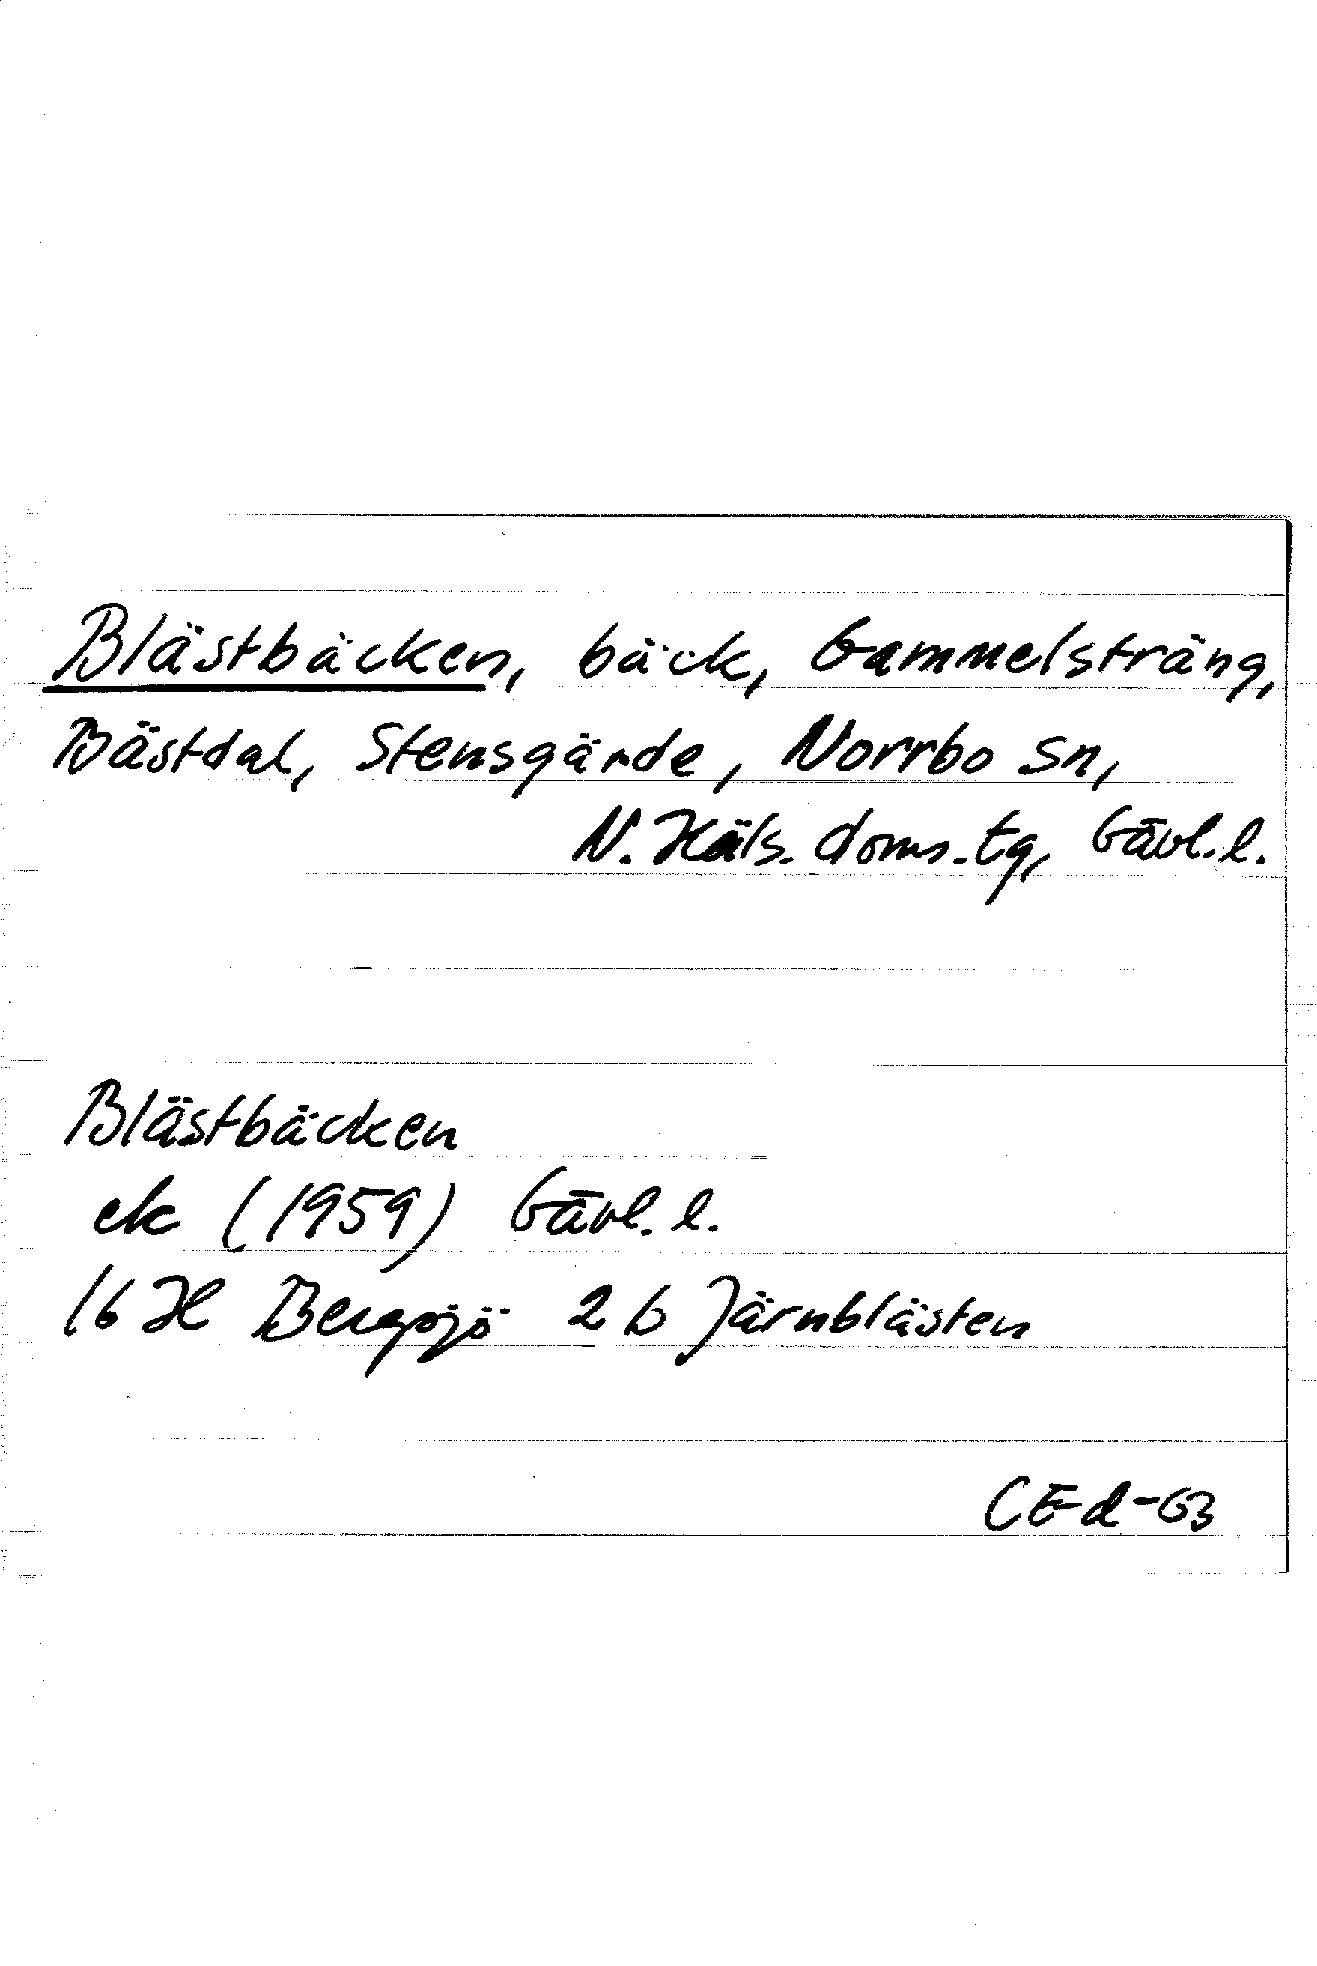 Blästbäcken, bäck, Gammelsträng,
Bästdal, Stensgärde, Norrbo sn,
N. Häls. doms. tg, Gävl. l.
Blästbäcken
ek (1959) Gävl. l.
16 H Bergsjö 2 b Järnblästen
CEd-63